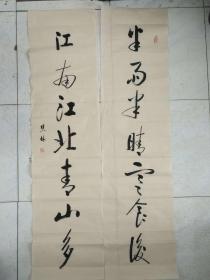 半雨半晴寒食後
江南江北青山多